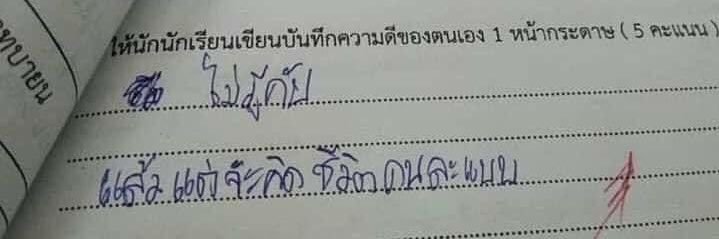 ทบายน
ให้นักนักเรียนเขียนบันทึกความดีของตนเอง 1 หน้ากระดาษ ( 5 คะแนน )
ไม่มีคับ
แล้วแต่จะคิด ชีวิตคนละแบบ